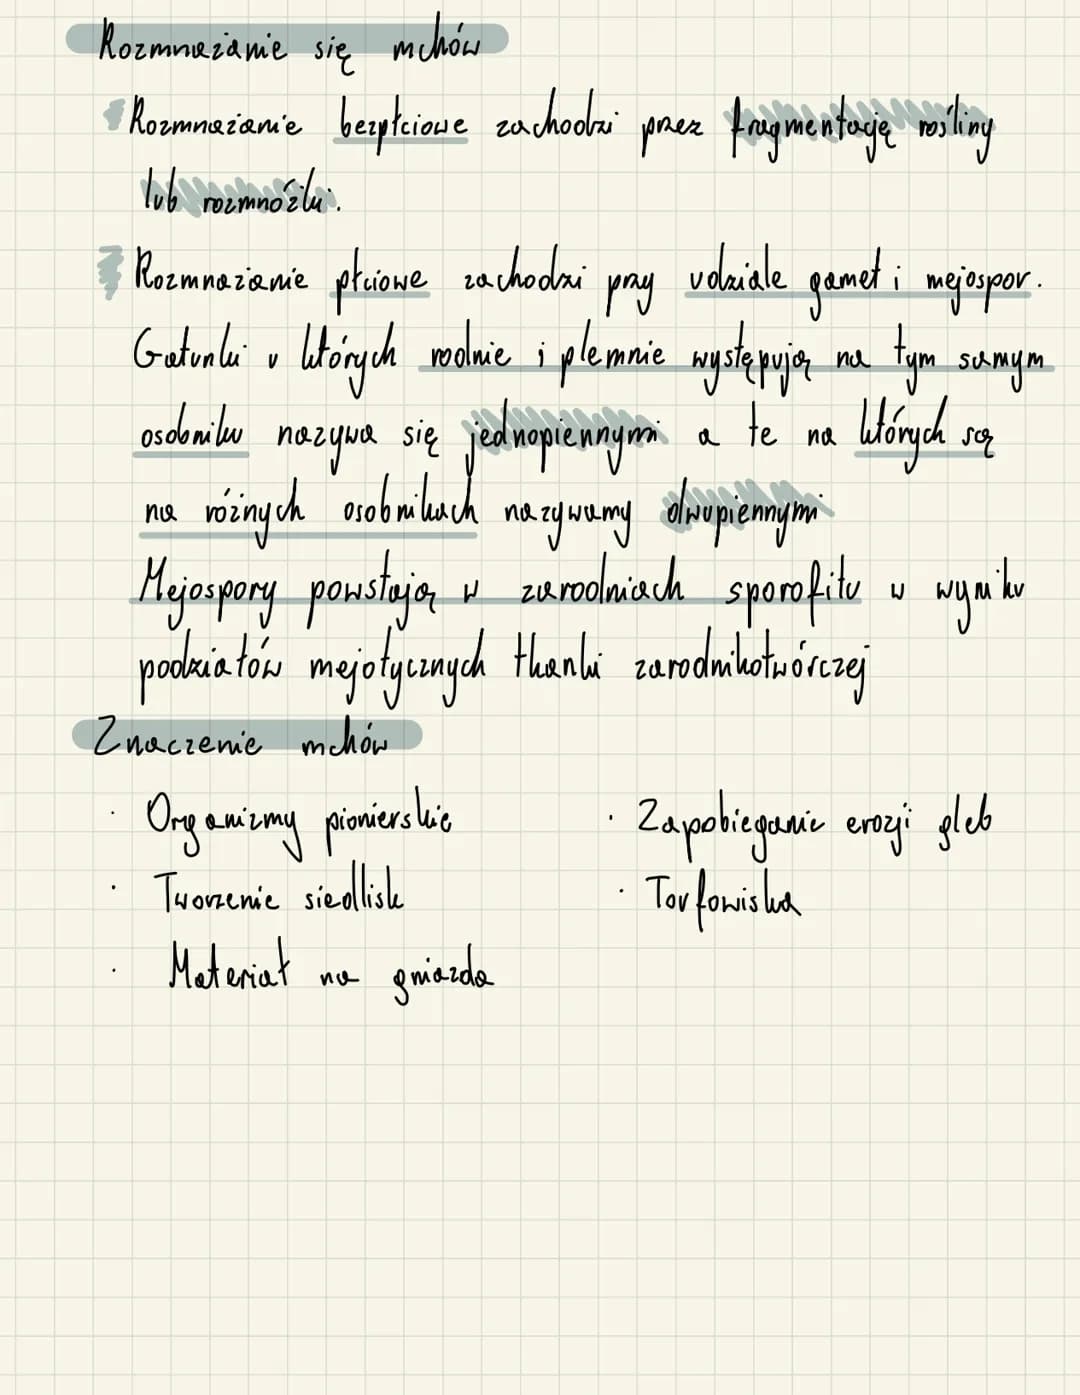 Rozmnażanie się mchów
Rozmnażanie bezpłciowe zachodzi przez fragmentację rośliny
lub rozmnóżki.
Rozmnażanie płciowe zachodzi przy udziale gamet i mejospor.
Gatunki u których rodnie i plemnie występują na tym samym
osobniku nazywa się jednopiennymi a te na których są
na różnych osobnikach nazywamy dwupiennymi
Mejospory powstają w zarodniach sporofitu w wyniku
podziałów mejotycznych tkanki zarodnikotwórczej
Znaczenie mchów
· Organizmy pionierskie
· Tworzenie siedlisk
· Materiał na gniazda
· Zapobieganie erozji gleb
· Torfowiska